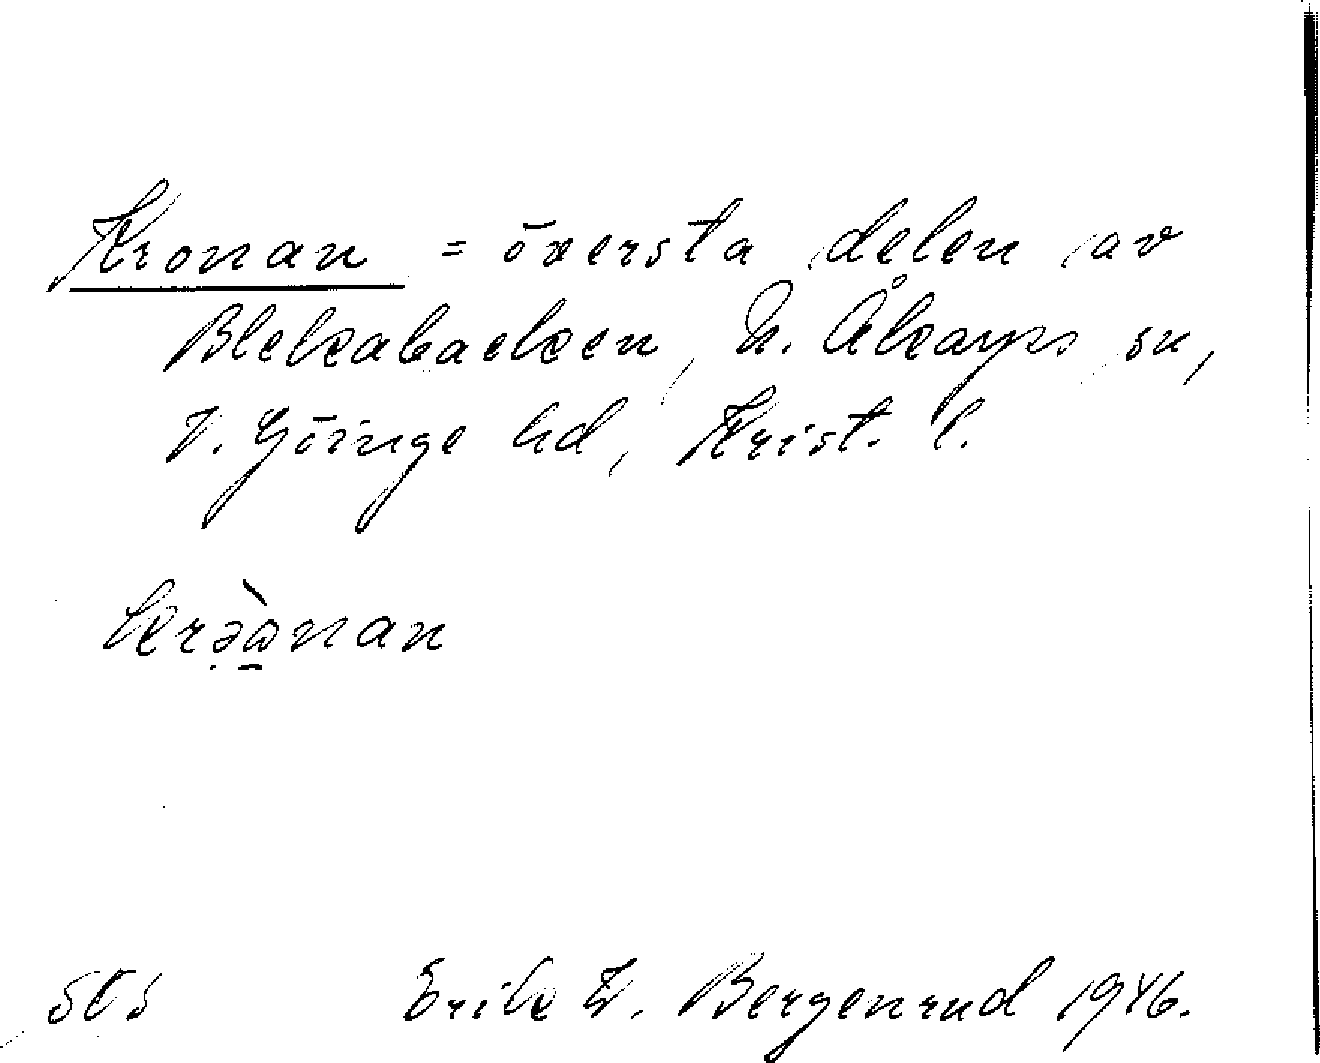 Kronan = översta delen av
Blekabacken, N. Åkarps sn,
V. Göinge hd, Krist. l.
Erik W. Bergenrud 1946.